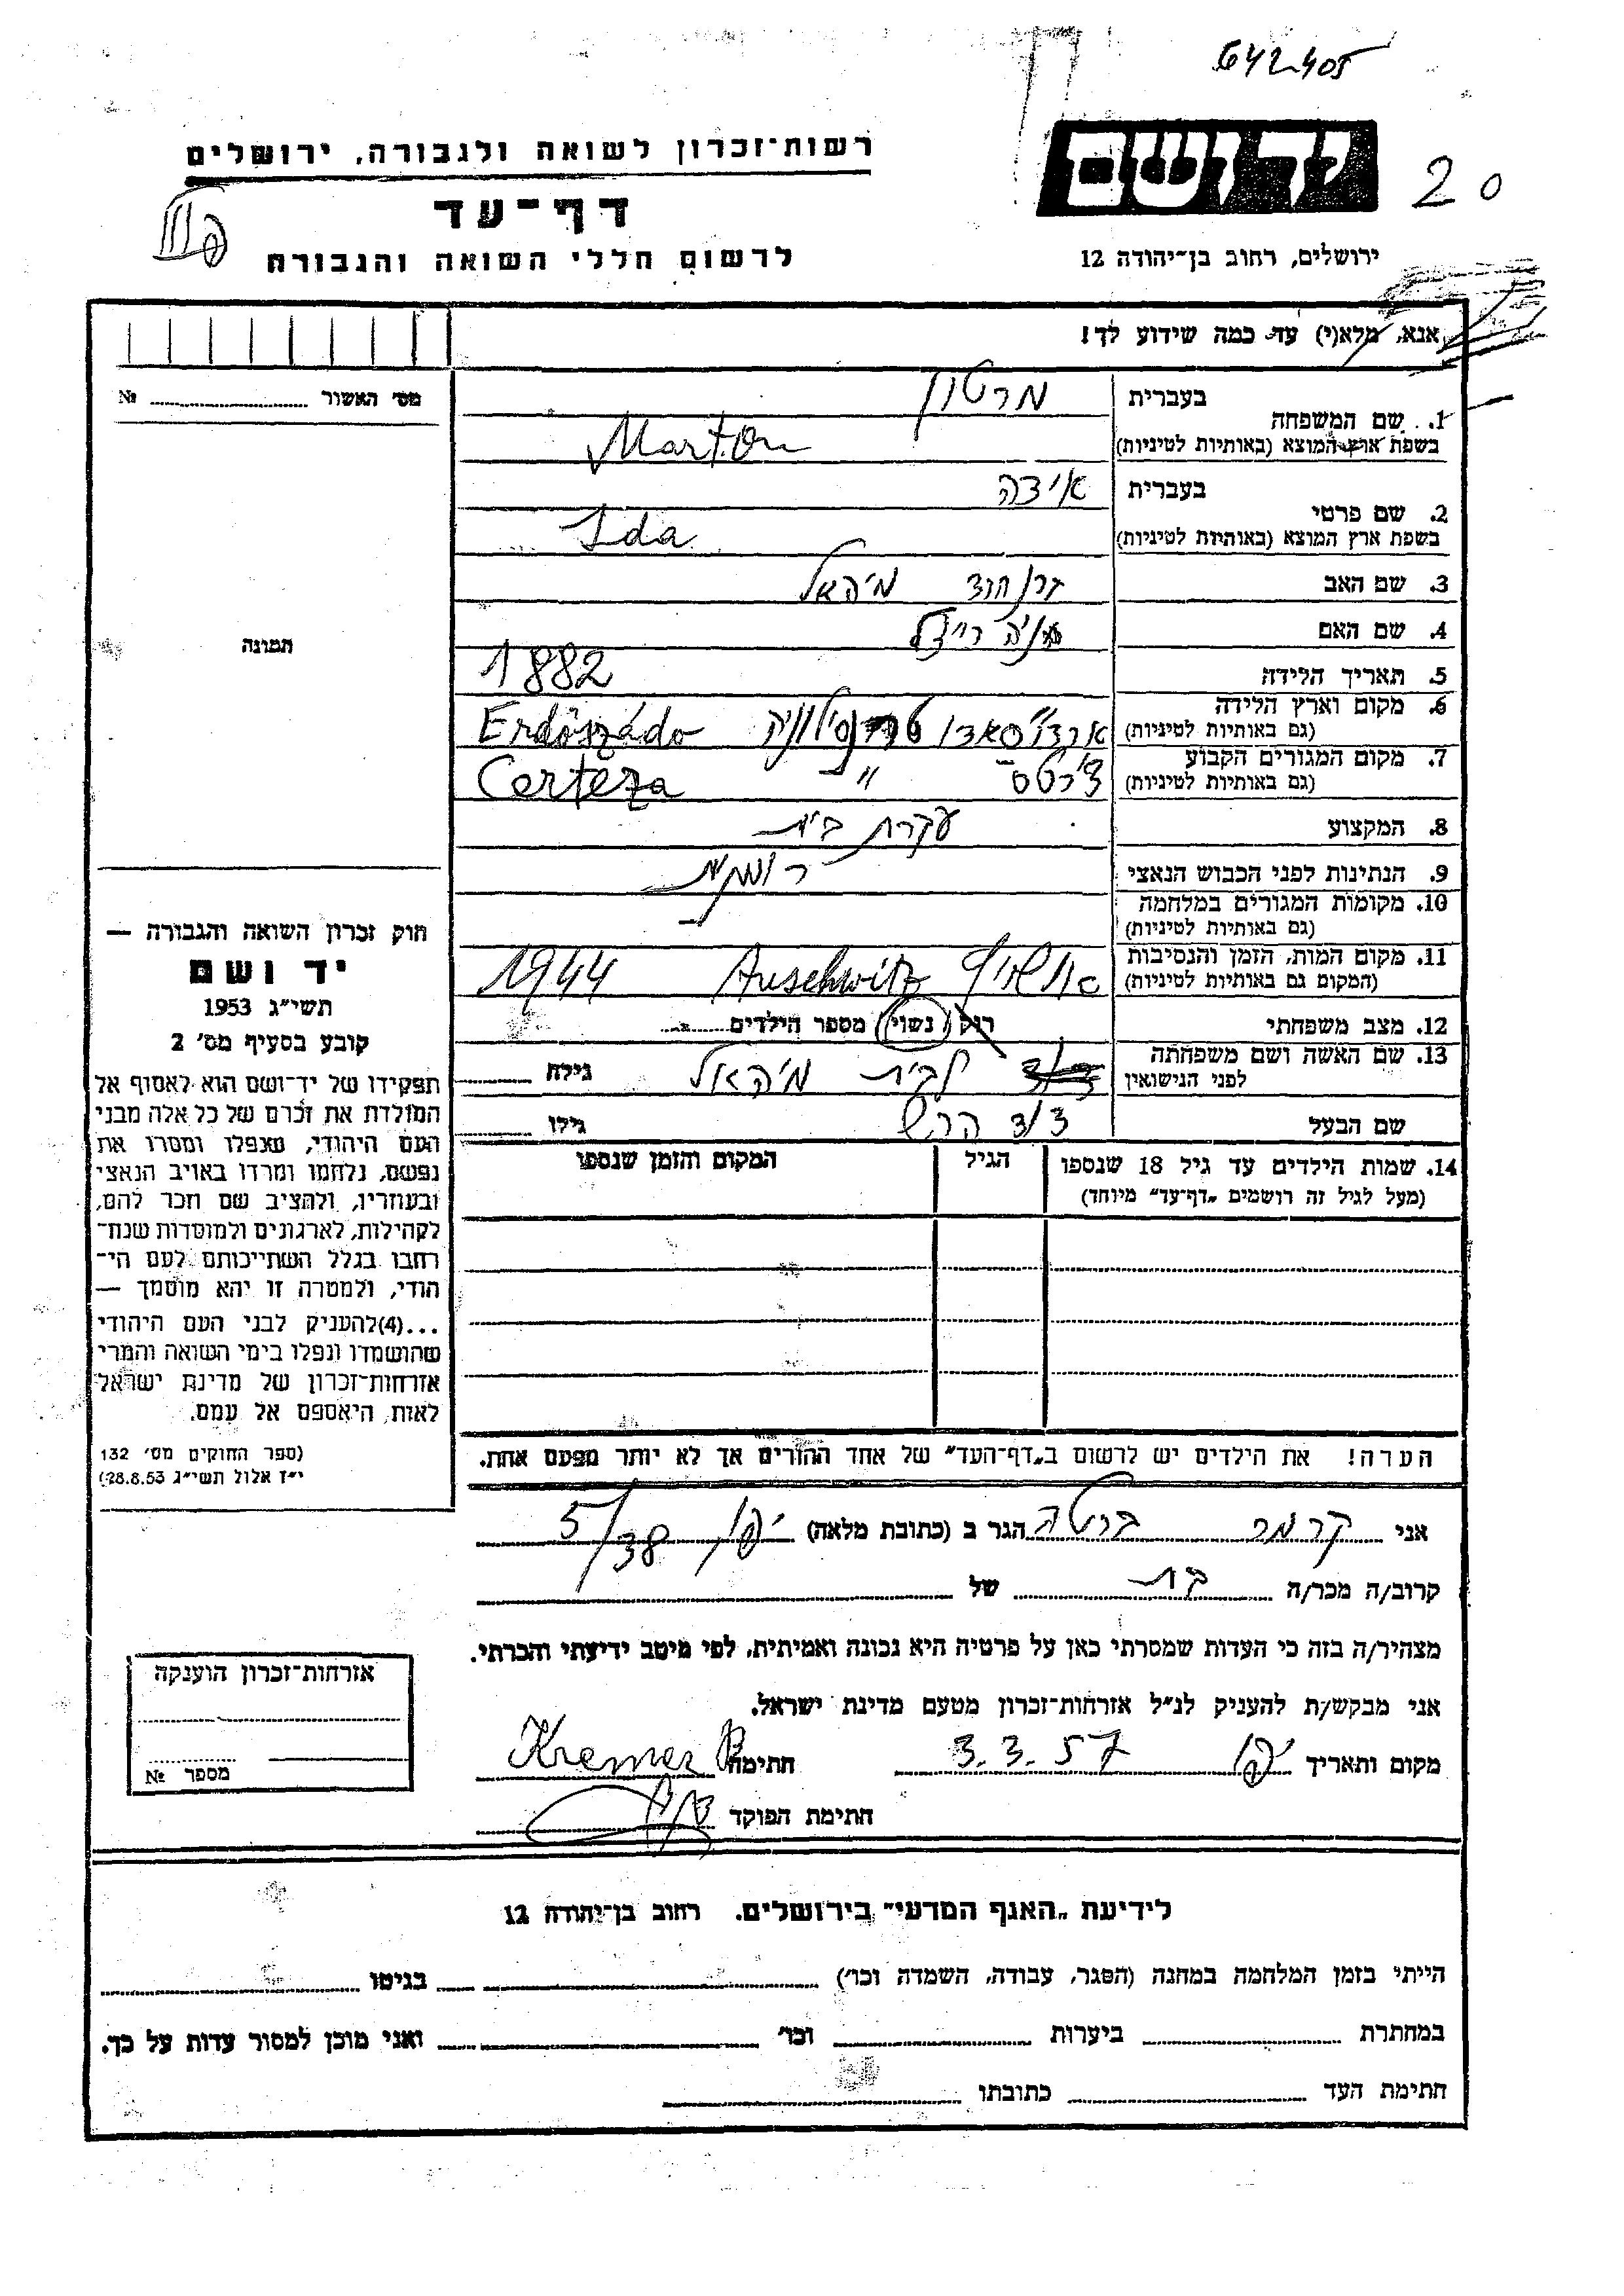 642405
20
יד ושם
ירושלים, רחוב בן־יהודה 12
רשות־זכרון לשואה ולגבורה, ירושלים
דף־עד
לרשום חללי השואה והגבורה
אנא, מלא(י) עד כמה שידוע לך!
מס׳ האשור № 
1. שם המשפחה בעברית מרטון
בשפת ארץ המוצא (באותיות לטיניות) Marton
2. שם פרטי בעברית אידה
בשפת ארץ המוצא (באותיות לטיניות) Ida
3. שם האב מיהאל
4. שם האם רייזל
5. תאריך הלידה 1882
6. מקום וארץ הלידה (גם באותיות לטיניות) טרנסילוניה Erdőszádo
7. מקום המגורים הקבוע (גם באותיות לטיניות) " Certeza
8. המקצוע עקרת בית
9. הנתינות לפני הכבוש הנאצי רומנית
10. מקומות המגורים במלחמה (גם באותיות לטיניות)
11. מקום המות, הזמן והנסיבות (המקום גם באותיות לטיניות) אושויץ Auschwitz 1944
12. מצב משפחתי רוק / נשוי / מספר הילדים
13. שם האשה ושם משפחתה לפני הנישואין לבית מיהאל גילה
שם הבעל הרש גילו
14. שמות הילדים עד גיל 18 שנספו (מעל לגיל זה רושמים „דף־עד״ מיוחד) הגיל המקום והזמן שנספו
הערה! את הילדים יש לרשום ב„דף־העד״ של אחד ההורים אך לא יותר מפעם אחת.
תמונה
חוק זכרון השואה והגבורה —
יד ושם
תשי״ג 1953
קובע בסעיף מס׳ 2
תפקידו של יד־ושם הוא לאסוף אל
המולדת את זכרם של כל אלה מבני
העם היהודי, שנפלו ומסרו את
נפשם, נלחמו ומרדו באויב הנאצי
ובעוזריו, ולהציב שם וזכר להם,
לקהילות, לארגונים ולמוסדות שנח־
רבו בגלל השתייכותם לעם הי־
הודי, ולמטרה זו יהא מוסמך —
...(4)להעניק לבני העם היהודי
שהושמדו ונפלו בימי השואה והמרי
אזרחות־זכרון של מדינת ישראל
לאות היאספם אל עמם.
(ספר החוקים מס׳ 132
י״ז אלול תשי״ג 28.8.53)
אני קרמר ברטה הגר ב (כתובת מלאה) יפו 5/38
קרוב/ה מכר/ה בת של
מצהיר/ה בזה כי העדות שמסרתי כאן על פרטיה היא נכונה ואמיתית, לפי מיטב ידיעתי והכרתי.
אני מבקש/ת להעניק לנ״ל אזרחות־זכרון מטעם מדינת ישראל.
מקום ותאריך יפו 3.3.57 חתימה Kremer B
חתימת הפוקד
אזרחות־זכרון הוענקה
מספר №
לידיעת „האגף המדעי״ בירושלים. רחוב בן־יהודה 12
הייתי בזמן המלחמה במחנה (הסגר, עבודה, השמדה וכו׳) בגיטו
במחתרת ביערות וכו׳ ואני מוכן למסור עדות על כך.
חתימת העד כתובתו